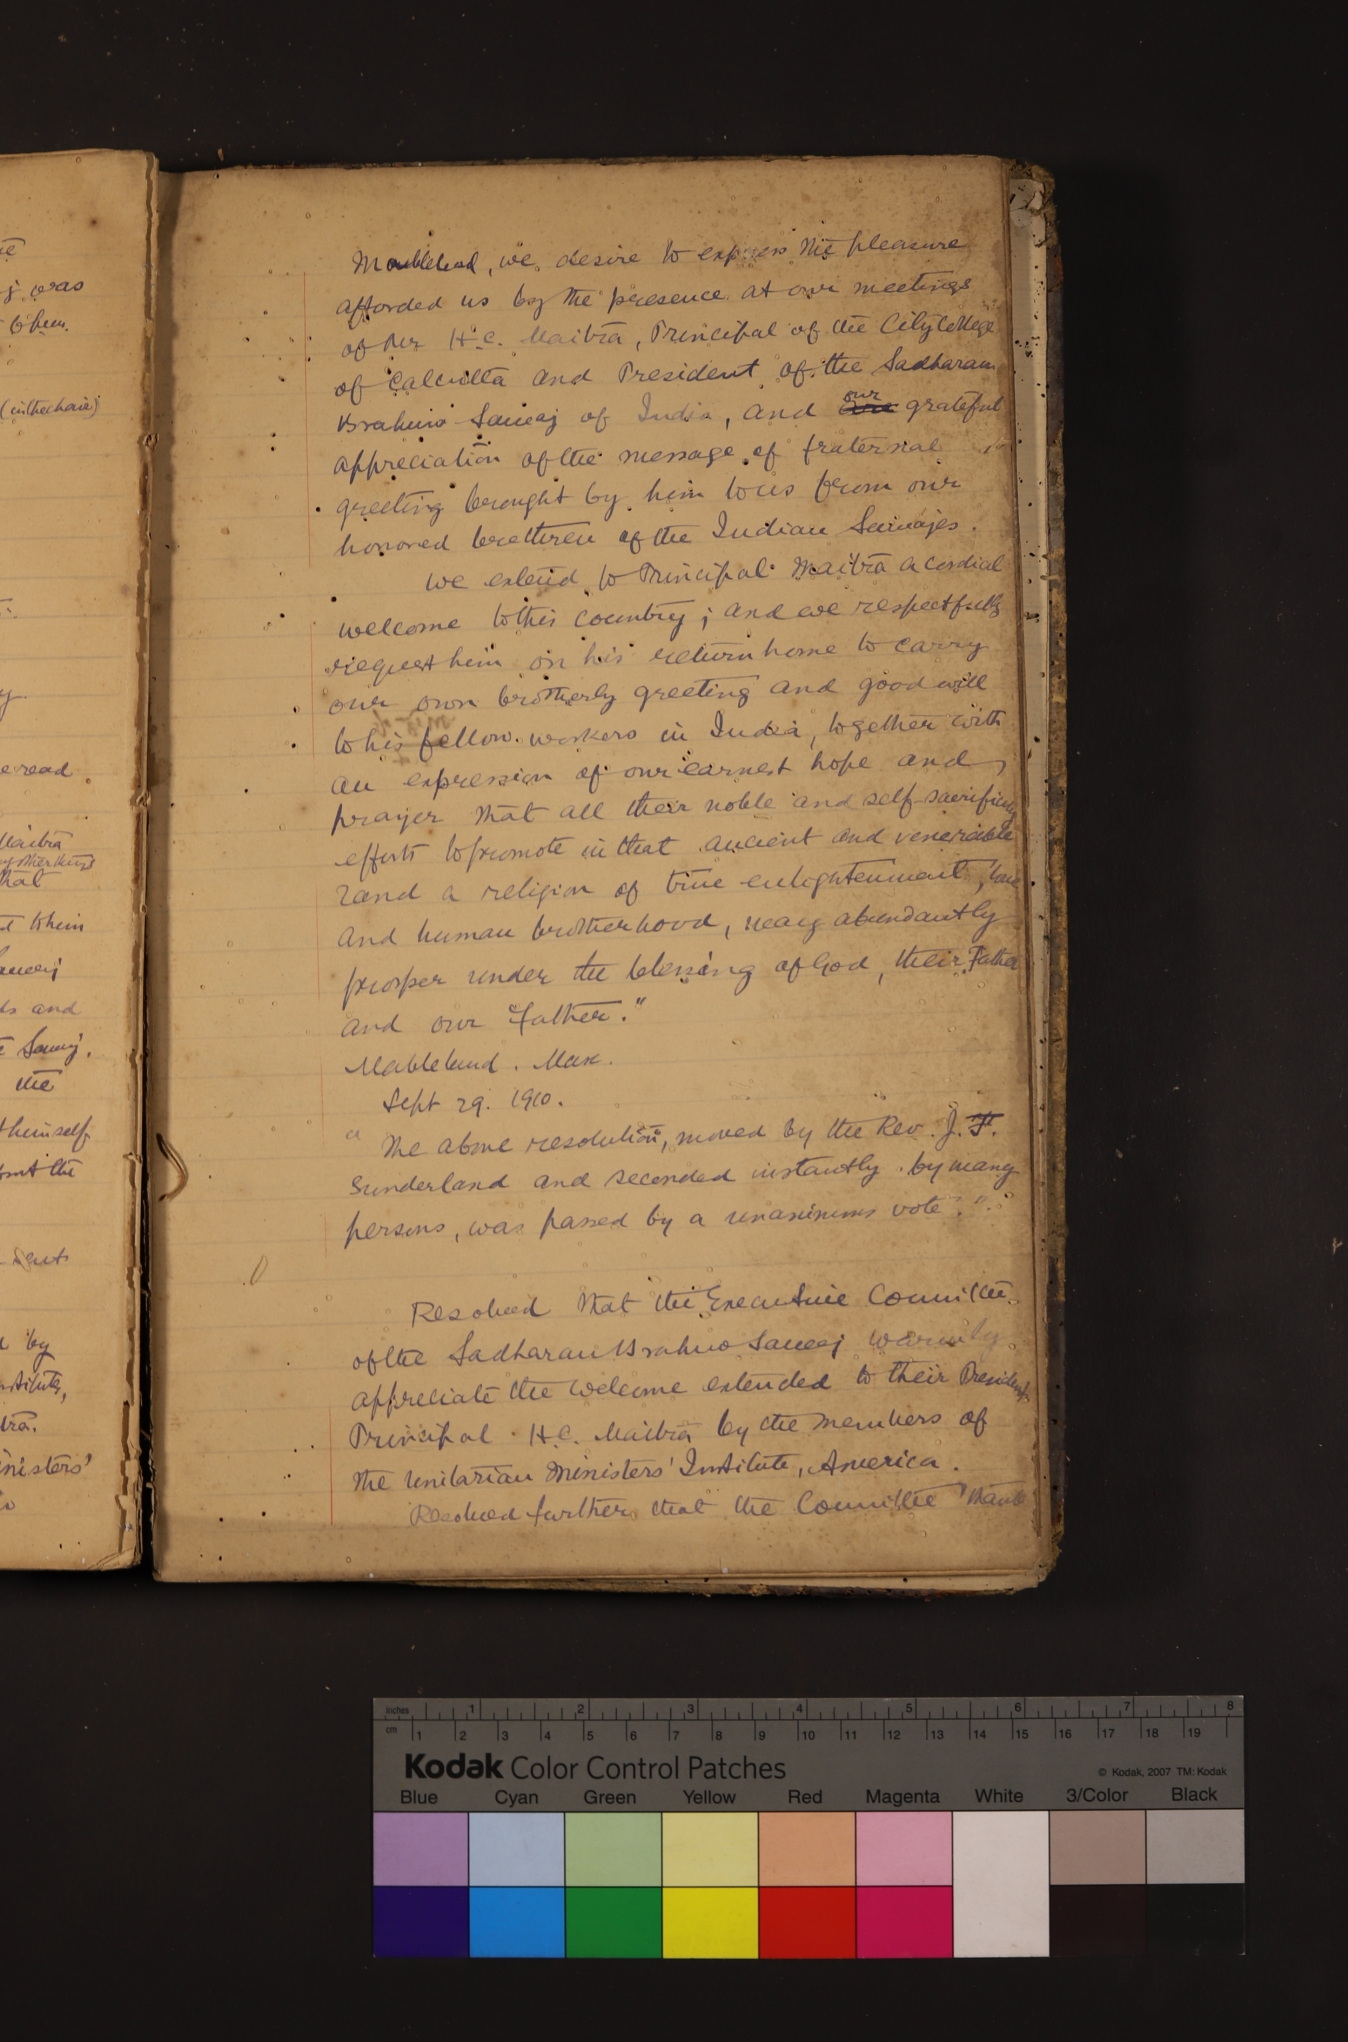 Marblehead, we desire to express the pleasure
afforded us by the presence at our meetings
of Mr H.C. Maitra, Principal of the City College
of Calcutta and President of the Sadharan
Brahmo Samaj of India, and our grateful
appreciation of the message of fraternal
greeting brought by him to us from our
honored brethren of the Indian Samajes.
We extend to Principal Maitra a cordial
welcome to this country; and we respectfully
request him on his return home to carry
our own brotherly greeting and good will
to his fellow workers in India, together with
an expression of our earnest hope and
prayer that all their noble and self-sacrificing
efforts to promote in that ancient and venerable
land a religion of true enlightenment, love
and human brotherhood, may abundantly
prosper under the blessing of God, their Father
and our Father."
Mablehead. Mass.
Sept 29. 1910.
"The above resolution, moved by the Rev. J. T.
Sunderland and seconded instantly by many
persons, was passed by a unanimous vote."
Resolved that the Executive Committee
of the Sadharan Brahmo Samaj warmly
appreciate the welcome extended to their President
Principal H.C. Maitra by the members of
the Unitarian Ministers' Institute, America.
Resolved further that the Committee thank
j was
to him.
(in the chair)
be read
Maitra
that
to him
Samaj
ds and
Samaj.
the
himself
sent
by
Institute,
Ministers'
inches 1 2 3 4 5 6 7 8
cm 1 2 3 4 5 6 7 8 9 10 11 12 13 14 15 16 17 18 19
Kodak Color Control Patches
© Kodak, 2007 TM: Kodak
Blue Cyan Green Yellow Red Magenta White 3/Color Black